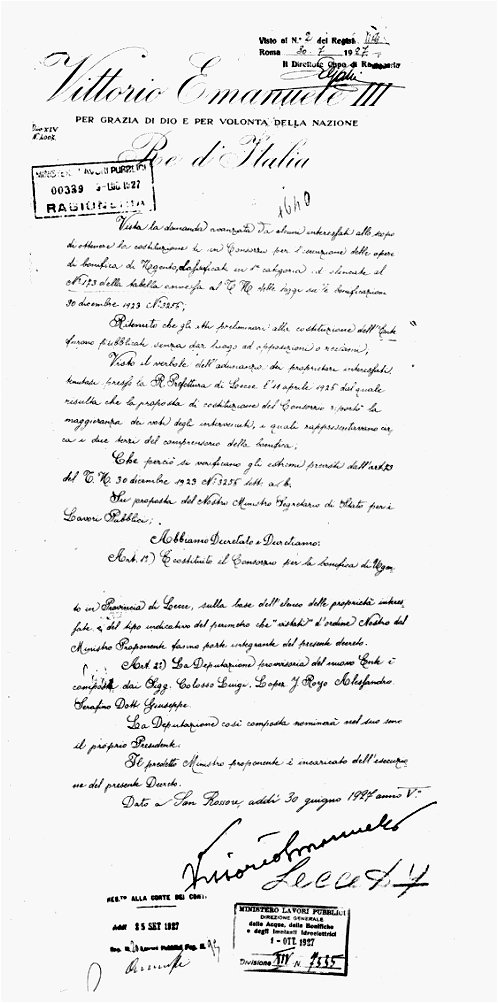 Visto al N.° 2 del Regist.
Roma 30.7 1927.
Il Direttore Capo di Ragioneria
Vittorio Emanuele III
PER GRAZIA DI DIO E PER VOLONTÀ DELLA NAZIONE
Re d'Italia
Div. XIV
MINISTERO LAVORI PUBBLICI
00339 LUG. 1927
RAGIONERIA
1640
Vista la domanda avanzata da alcuni interessati allo scopo
di ottenere la costituzione di un Consorzio per l'esecuzione delle opere
di bonifica di Ugento, classificate in 1ª categoria ed elencate al
N° 173 della tabella annessa al T. U. delle leggi sulle bonificazioni
30 dicembre 1923 N° 3256;
Ritenuto che gli atti preliminari alla costituzione dell'Ente
furono pubblicati senza dar luogo ad opposizioni o reclami;
Visto il verbale dell'adunanza dei proprietari interessati,
tenutasi presso la R. Prefettura di Lecce il 18 aprile 1926 dal quale
risulta che la proposta di costituzione del Consorzio riportò la
maggioranza dei voti degli intervenuti, i quali rappresentavano cir
ca i due terzi del comprensorio della bonifica;
Che perciò si verificano gli estremi previsti dall'art.
del T. U. 30 dicembre 1923 N° 3256 lett. a. b.
Su proposta del Nostro Ministro Segretario di Stato per i
Lavori Pubblici;
Abbiamo Decretato e Decretiamo:
Art. 1°) È costituito il Consorzio per la bonifica di Ugen
to in Provincia di Lecce, sulla base dell'elenco delle proprietà interes
sate e del tipo indicativo del perimetro che "vistati" d'ordine Nostro dal
Ministro Proponente fanno parte integrante del presente decreto.
Art. 2°) La Deputazione provvisoria del nuovo Ente è
composta dai Sigg. Colosso Luigi, Lopez Y Royo Alessandro
Serafino Dott Giuseppe.
La Deputazione così composta nominerà nel suo seno
il proprio Presidente.
Il predetto Ministro proponente è incaricato dell'esecuzio
ne del presente Decreto.
Dato a San Rossore, addì 30 giugno 1927 anno V°
Vittorio Emanuele
Lecce
REG.TO ALLA CORTE DEI CONTI
Addì 25 SET 1927
Reg. N. 20 Lavori Pubblici, Fog. N.
MINISTERO LAVORI PUBBLICI
DIREZIONE GENERALE
delle Acque, delle Bonifiche
e degli Impianti Idroelettrici
1 - OTT. 1927
Divisione XIV N. 7535